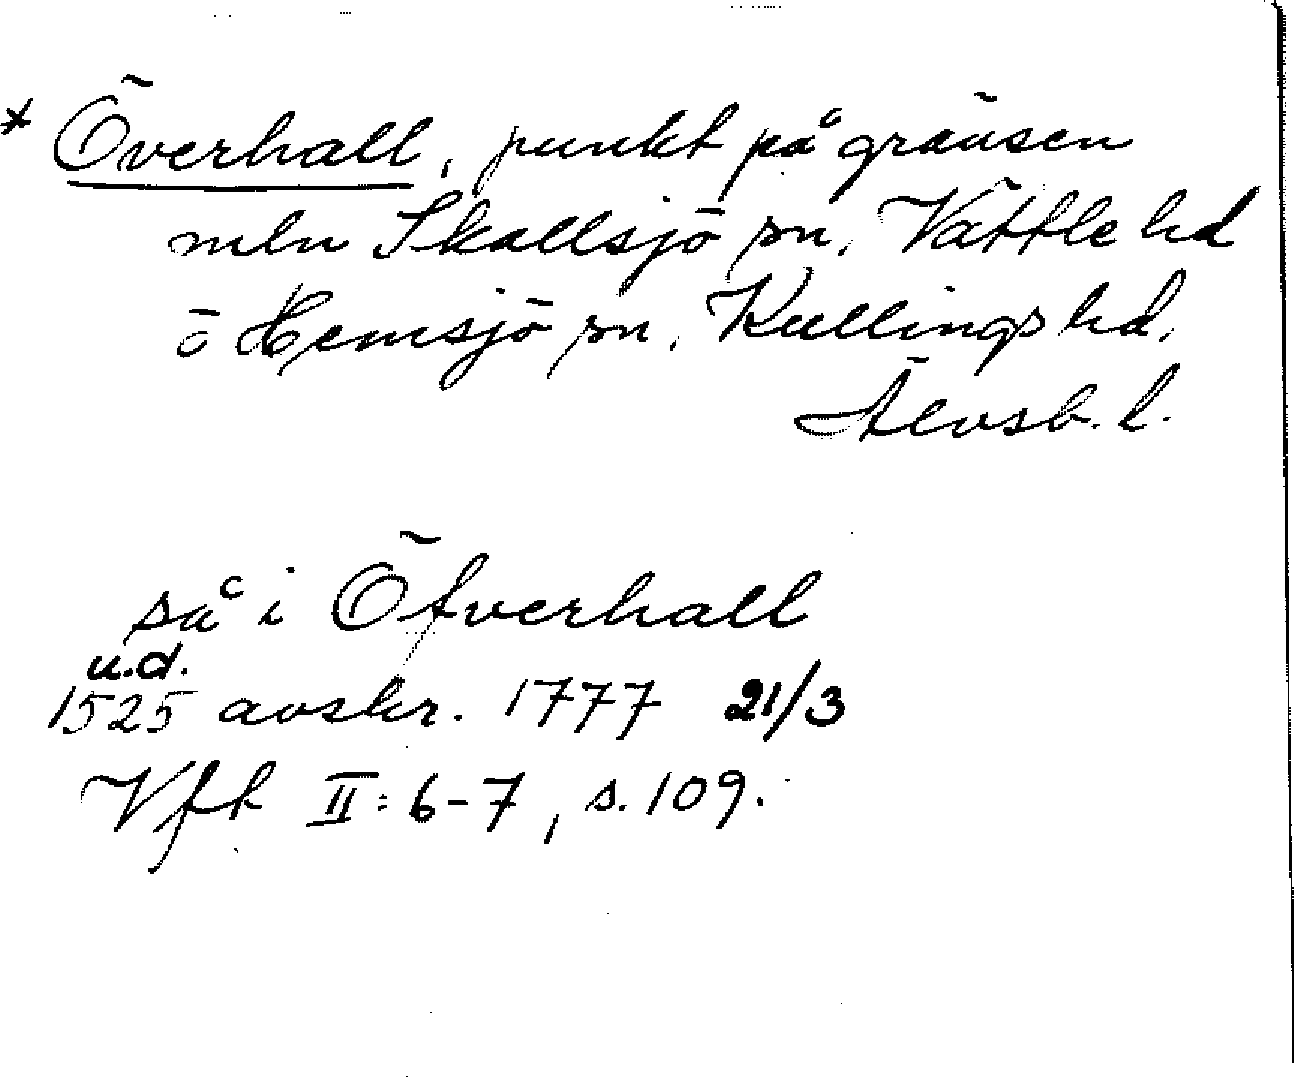 * Överhall, punkt på gränsen
mln Skallsjö sn, Vättle hd
o Hemsjö sn, Kullings hd,
Älvsb. l.
så i Öfverhall
u.d.
1525 avskr. 1777 21/3
Vfk II: 6-7, s. 109.